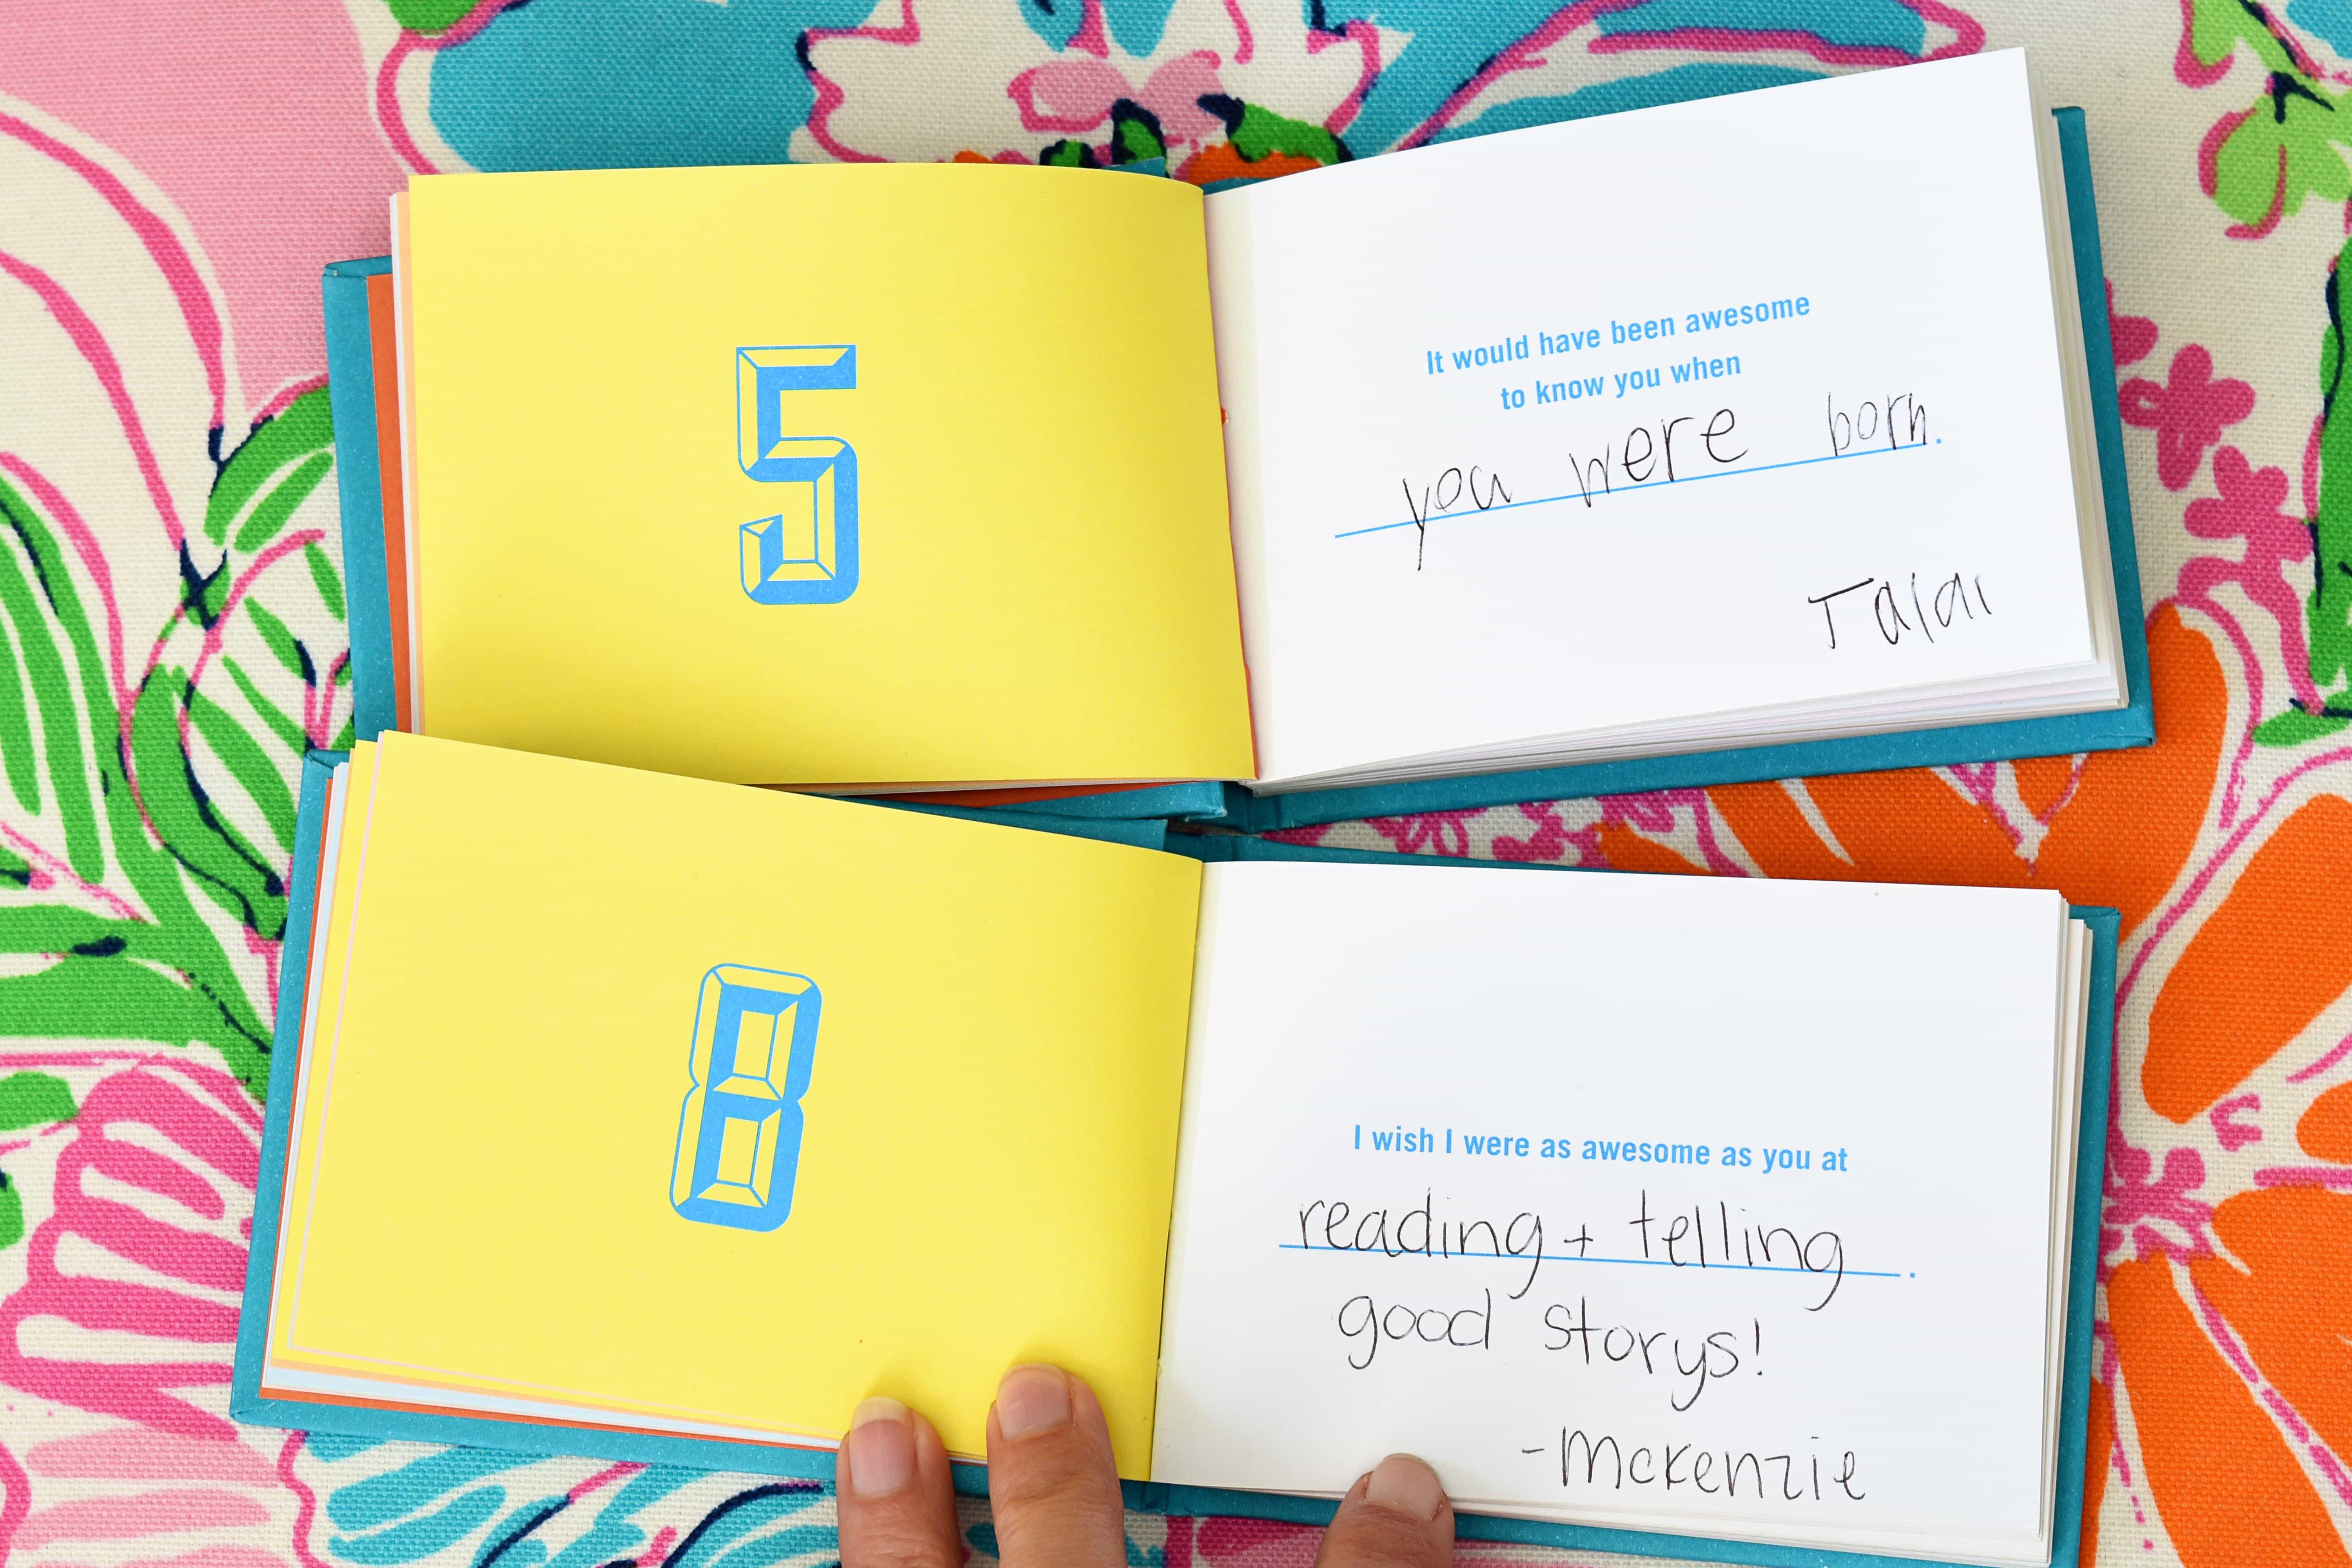 5
It would have been awesome
to know you when
you were born.
Talai
8
I wish I were as awesome as you at
reading + telling.
good storys!
-Mckenzie